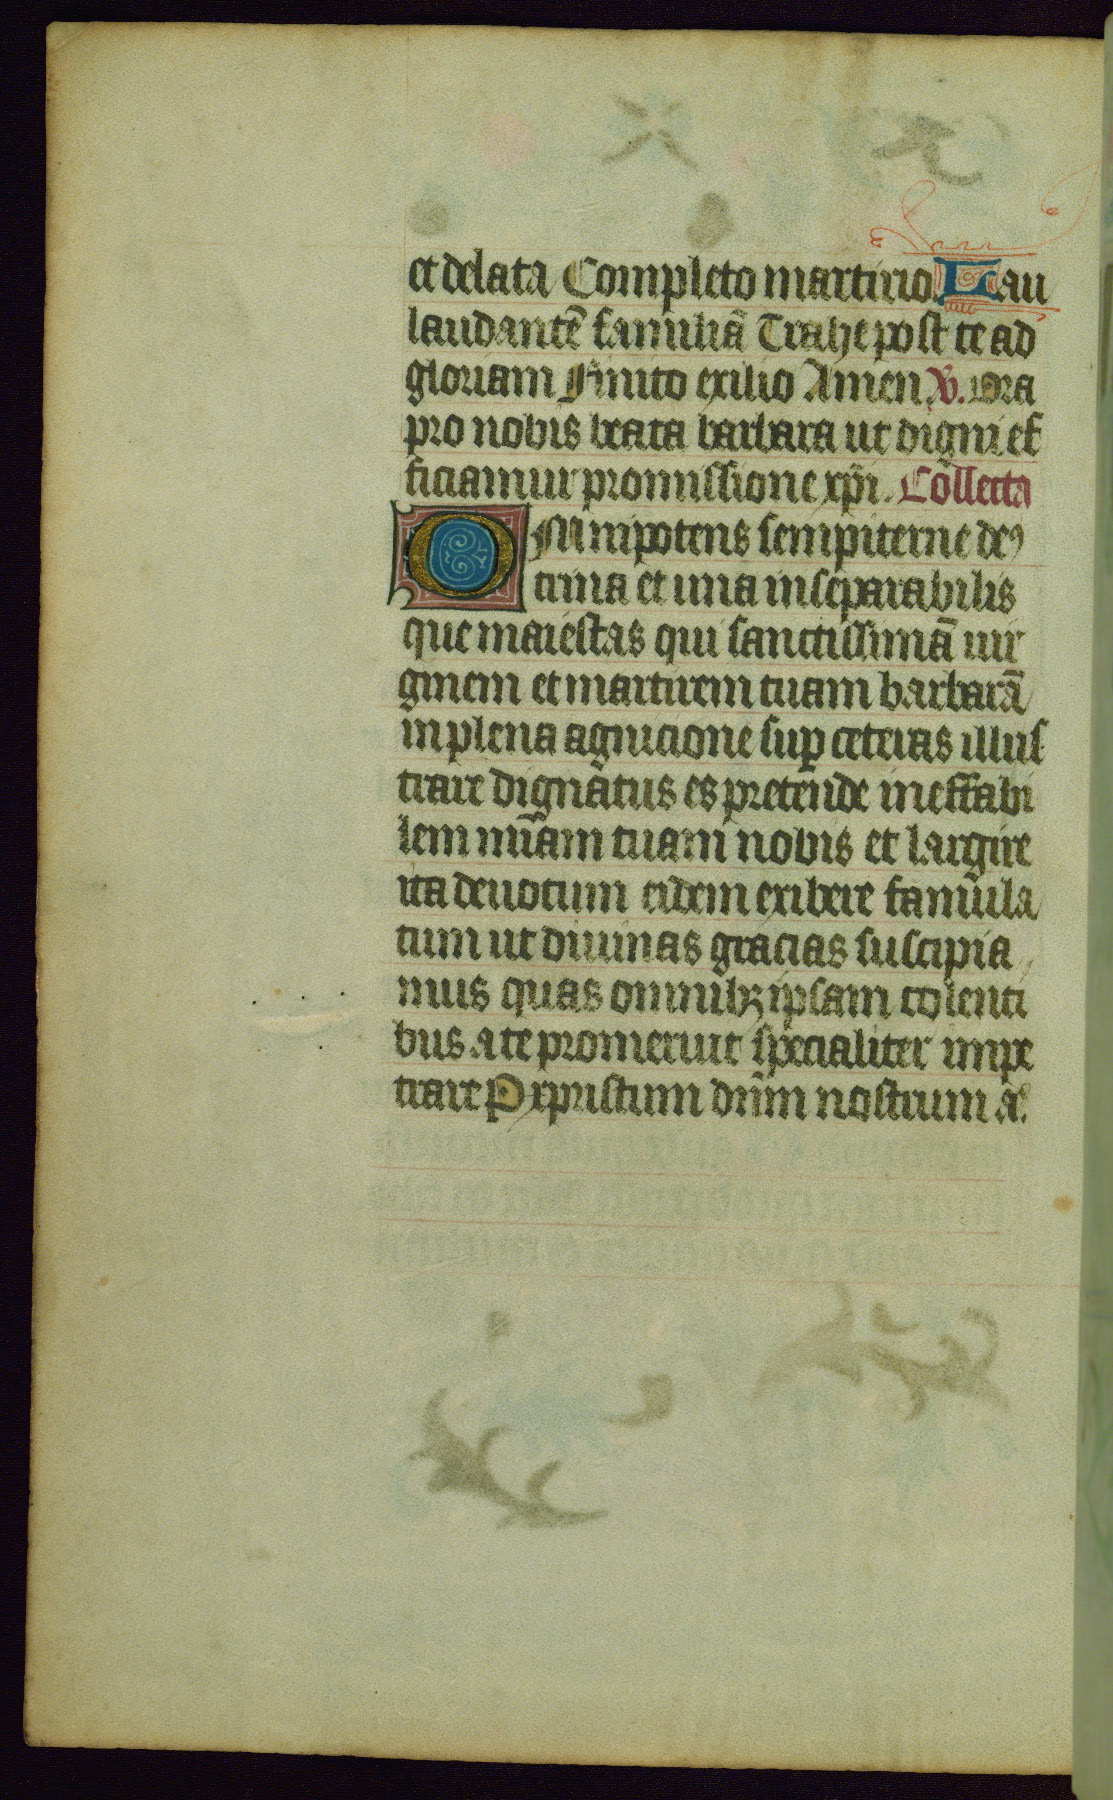 et delata Completo martirio Lau
laudantē familiā Trahe post te ad
gloriam Finito exilio Amen ℣. Ora
pro nobis beata barbara ut digni ef
ficiamur promissione xp̄i. Collecta
OMnipotens sempiterne deꝰ
trina et una inseparabilis
que maiestas qui sanctissimā uir
ginem et martirem tuam barbarā
in plena agnicione suꝑ ceteras illus
trare dignatus es pretende ineffabi
lem mīam tuam nobis et largire
ita deuotum eidem exibere famula
tum ut diuinas gracias suscipia
mus quas omnibꝫ ipsam colenti
bus a te promeruit specialiter impe
trare P xpristum dn̄m nostrum a.